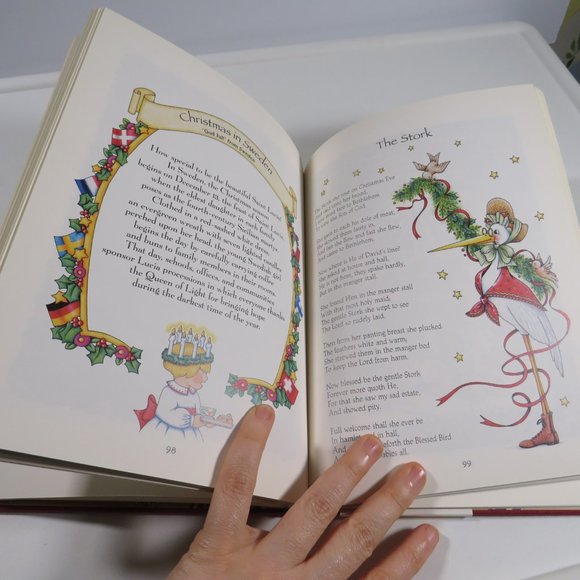 Christmas in Sweden
"God Jul!" from Sweden
How special to be the beautiful Saint Lucia!
In Sweden, the Christmas season
begins on December 13, the feast of Saint Lucy,
when the eldest daughter in each family
poses as the fourth-century Sicilian
Clothed in a red-sashed white dress,
an evergreen wreath with seven lighted candles
perched upon her head, the young Swedish girl
begins the day by carefully carrying coffee
and buns to family members in their rooms.
That day, schools, offices, and communities
sponsor Lucia processions in which everyone thanks
the Queen of Light for bringing hope
during the darkest time of the year.
98
The Stork
The stork she rose on Christmas Eve
And said unto her brood,
I now must fare to Bethlehem
To view the Son of God.
She gave to each his dole of meat,
She stowed them fairly in,
And fair she flew and fast she flew,
And came to Bethlehem.
Now where is He of David's line?
She asked at house and hall,
He is not here, they spake hardly,
But in the manger stall.
She found Him in the manger stall
With that most holy maid,
The gentle Stork she wept to see
The Lord so rudely laid.
Then from her panting breast she plucked
The feathers white and warm,
She strewed them in the manger bed
To keep the Lord from harm.
Now blessed be the gentle Stork
Forever more quoth He,
For that she saw my sad estate,
And showed pity.
Full welcome shall she ever be
In hamlet and in hall,
forth the Blessed Bird
babies all.
99